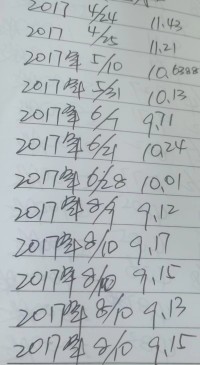 2017 4/24 11.43
2017 4/25 11.21
2017年 5/10 10.6888
2017年 5/31 10.13
2017年 6/7 9.71
2017年 6/21 10.24
2017年 6/28 10.01
2017年 8/9 9.12
2017年 8/10 9.17
2017年 8/10 9.15
2017年 8/10 9.13
2017年 8/10 9.15